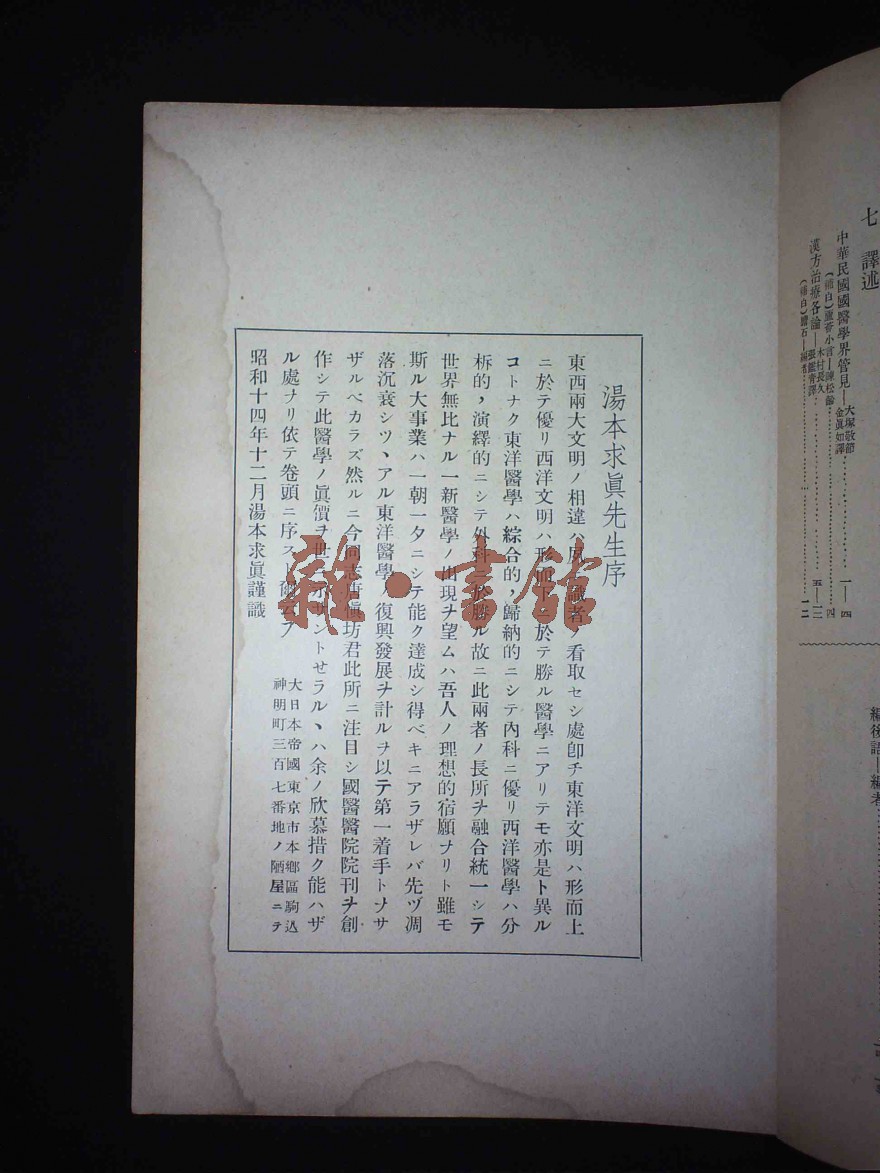 七　譯述
中華民國國醫學界管見—大塚敬節
金眞如譯…………一—四
(補白)蘆薈小言—陳松齡…………四
漢方治療各論—木村長久
張鑑靑譯…………五—一二
(補白)石—編者…………一二
編後語—編者
湯本求眞先生序
東西兩大文明ノ相違ハ識者ノ看取セシ處卽チ東洋文明ハ形而上
ニ於テ優リ西洋文明ハ形而下ニ於テ勝ル醫學ニアリテモ亦是ト異ル
コトナク東洋醫學ハ綜合的，歸納的ニシテ內科ニ優リ西洋醫學ハ分
柝的，演繹的ニシテ外科ニ於勝ル故ニ此兩者ノ長所ヲ融合統一シテ
世界無比ナル一新醫學ノ出現ヲ望ムハ吾人ノ理想的宿願ナリト雖モ
斯ル大事業ハ一朝一夕ニシテ能ク達成シ得ベキニアラザレバ先ヅ凋
落沉衰シツヽアル東洋醫學ノ復興發展ヲ計ルヲ以テ第一着手トナサ
ザルベカラズ然ルニ今同志唐愼坊君此所ニ注目シ國醫醫院院刊ヲ創
作シテ此醫學ノ眞價ヲ世ニ示サントセラルヽハ余ノ欣慕措ク能ハザ
ル處ナリ依テ卷頭ニ序スト爾云フ
大日本帝國東京市本鄕區駒込
神明町三百七番地ノ陋屋ニテ
昭和十四年十二月湯本求眞謹識
雜·書館